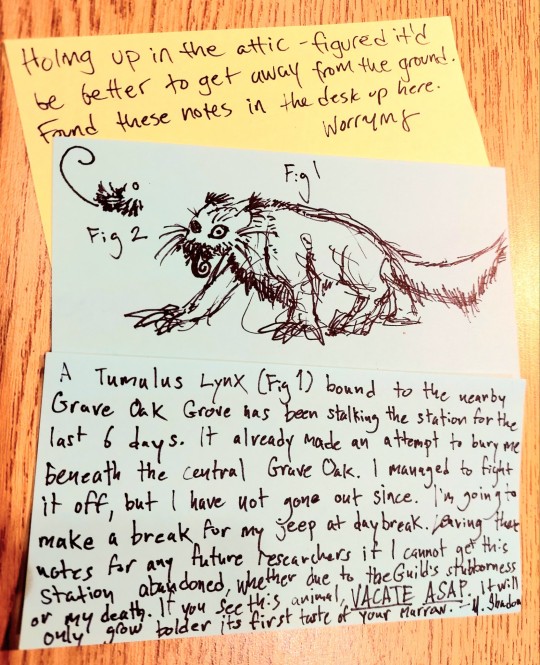 Holing up in the attic - figured it'd
be better to get away from the ground.
Found these notes in the desk up here.
Worrying
Fig 1
Fig 2
A Tumulus Lynx (Fig 1) bound to the nearby
Grave Oak Grove has been stalking the station for the
last 6 days. It already made an attempt to bury me
beneath the central Grave Oak. I managed to fight
it off, but I have not gone out since. I'm going to
make a break for my jeep at daybreak. Leaving these
notes for any future researchers if I cannot get this
station abandoned, whether due to the Guild's stubborness
or my death. If you see this animal, VACATE ASAP. It will
only grow bolder its first taste of your marrow. -